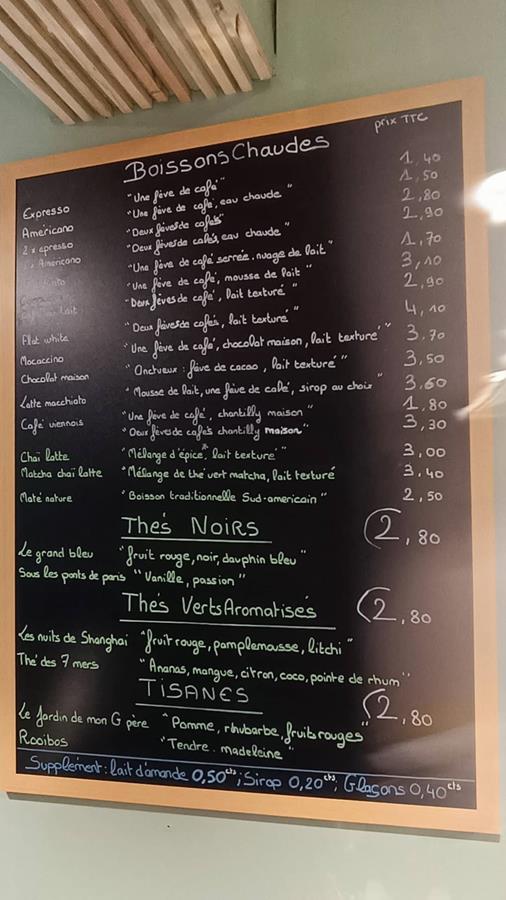 prix TTC
BoissonsChaudes
Expresso "Une fève de café" 1,40
Américano "Une fève de café, eau chaude" 1,50
2 x expresso "Deux fèves de cafés" 2,80
Américano "Deux fèves de cafés, eau chaude" 2,90
"Une fève de café serrée, nuage de lait" 1,70
"Une fève de café, mousse de lait" 3,10
"Deux fèves de café, lait texturé" 2,90
Flat white "Deux fèves de cafés, lait texturé" 4,10
Mocaccino "Une fève de café, chocolat maison, lait texturé" 3,70
Chocolat maison "Onctueux : fève de cacao, lait texturé" 3,50
Latte macchiato "Mousse de lait, une fève de café, sirop au choix" 3,60
Café viennois "Une fève de café, chantilly maison" 1,80
"Deux fèves de cafés chantilly maison" 3,30
Chaï latte "Mélange d'épice, lait texturé" 3,00
Matcha chaï latte "Mélange de thé vert matcha, lait texturé 3,40
Maté nature "Boisson traditionnelle Sud-americain" 2,50
Thés Noirs 2,80
Le grand bleu "fruit rouge, noir, dauphin bleu"
Sous les ponts de paris "Vanille, passion"
Thés VertsAromatisés 2,80
Les nuits de Shanghai "fruit rouge, pamplemousse, litchi"
Thé des 7 mers "Ananas, mangue, citron, coco, pointe de rhum"
Tisanes 2,80
Le Jardin de mon G père "Pomme, rhubarbe, fruits rouges"
Rooibos "Tendre madeleine"
Supplément : lait d'amande 0,50cts ; Sirop 0,20cts ; Glaçons 0,40cts